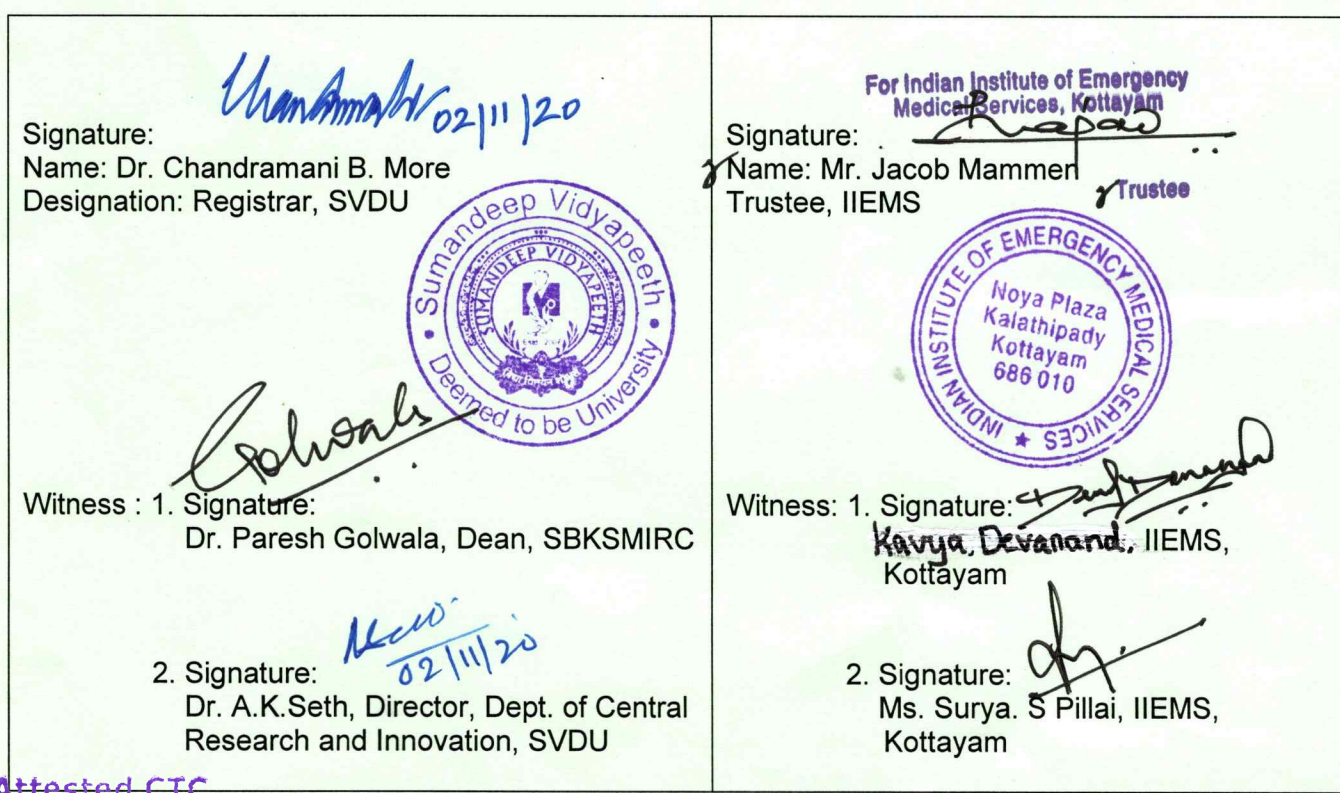 02/11/20
Signature:
Name: Dr. Chandramani B. More
Designation: Registrar, SVDU
Sumandeep Vidyapeeth
SUMANDEEP VIDYAPEETH
Deemed to be University
Golwala
Witness : 1. Signature:
Dr. Paresh Golwala, Dean, SBKSMIRC
02/11/20
2. Signature:
Dr. A.K.Seth, Director, Dept. of Central
Research and Innovation, SVDU
For Indian Institute of Emergency
Medical Services, Kottayam
Signature:
Name: Mr. Jacob Mammen
Trustee
Trustee, IIEMS
INDIAN INSTITUTE OF EMERGENCY MEDICAL SERVICES
Noya Plaza
Kalathipady
Kottayam
686 010
Witness: 1. Signature:
Kavya, Devanand, IIEMS,
Kottayam
2. Signature:
Ms. Surya. S Pillai, IIEMS,
Kottayam
Attested CTC